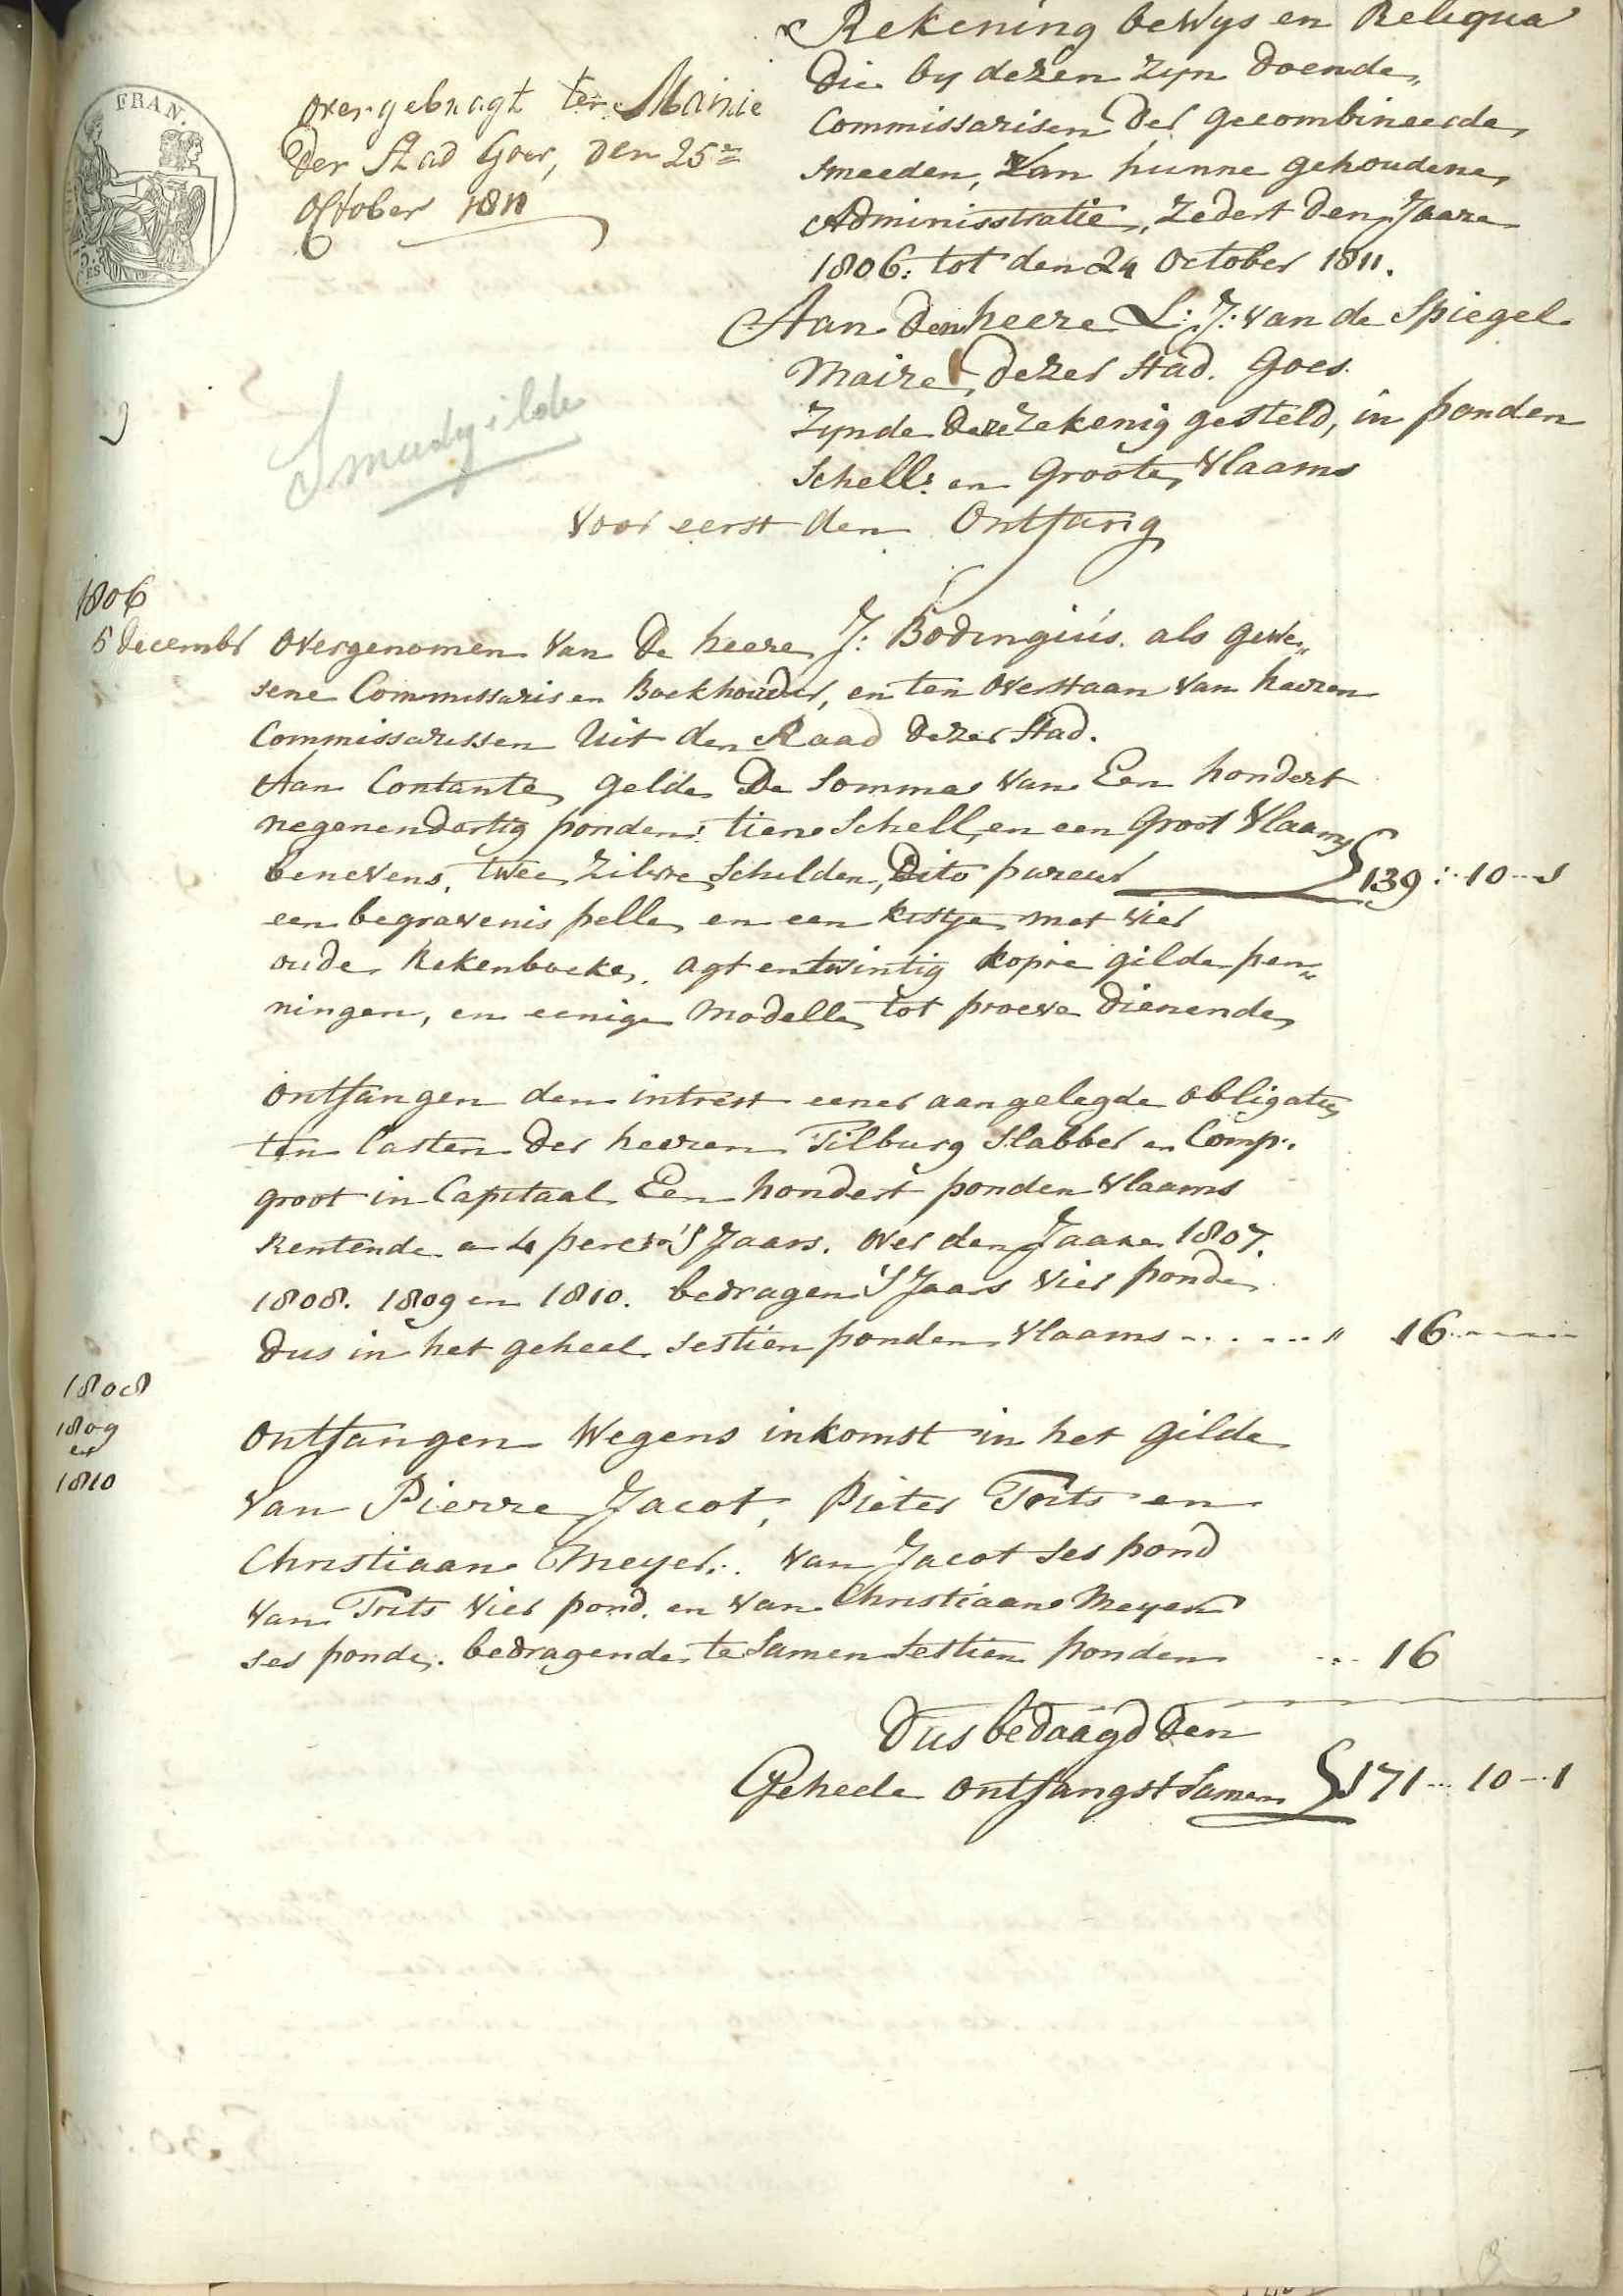 Rekening bewys en Reliqua
Die by dezen zyn doende,
Commissarisen der gecombineerde,
smeeden, Van hunne gehoudene,
Adminisstratie, Zedert den Jaare
1806: tot den 24 October 1811.
Aan den heere L: J: van de Spiegel
Maire, dezer Stad. Goes.
Zynde deze Rekenig gesteld, in ponden
Schell: en Groote, Vlaams
FRAN.
overgebragt ter Mairie
Der Stad Goes, den 25en
October 1811
Smeedgilde
Voor eerst den Ontfang
1806
5 decembr Overgenomen Van De heere J: Bodingius. als gewe„
sene Commissaris en Boekhouder, en ten Overstaan Van heeren
Commissarissen Uit den Raad dezer Stad.
Aan Contante, gelde De Somma Van Een hondert
negenendertig ponden: tien Schell, en een Groot Vlaams
benevens, twee Zilvre Schilden, Dito pareur 139 : 10 - 1
een begravenis pelle, en een kistje met vier
oude Rekenboeke, agt entwintig kopre gilde pen„
ningen, en eenige Modelle tot proeve dienende,
Ontfangen den intrest eener aangelegde obligatie,
ten lasten der heeren Tilburg Slabber en Comp:
groot in Capitaal Een hondert ponden Vlaams
Rentende a 4 percto 'S Jaars. Over den Jaare 1807.
1808. 1809 en 1810. bedragen 'S Jaars Vier ponde
dus in het geheel sestien ponden Vlaams - . . - - . " 16 - - - -
1808
1809
en
1810
Ontfangen Wegens inkomst in het gilde
van Pierre Jacot, Pieter Trits en
Christiaan Meyer. Van Jacot ses pond
Van Trits Vier pond. en van Christiaan Meyer
ses ponde. bedragende te Samen Sestien ponden ... 16
Dus bedraagd den
Geheele Ontfangst Samen 171 ... 10 - 1